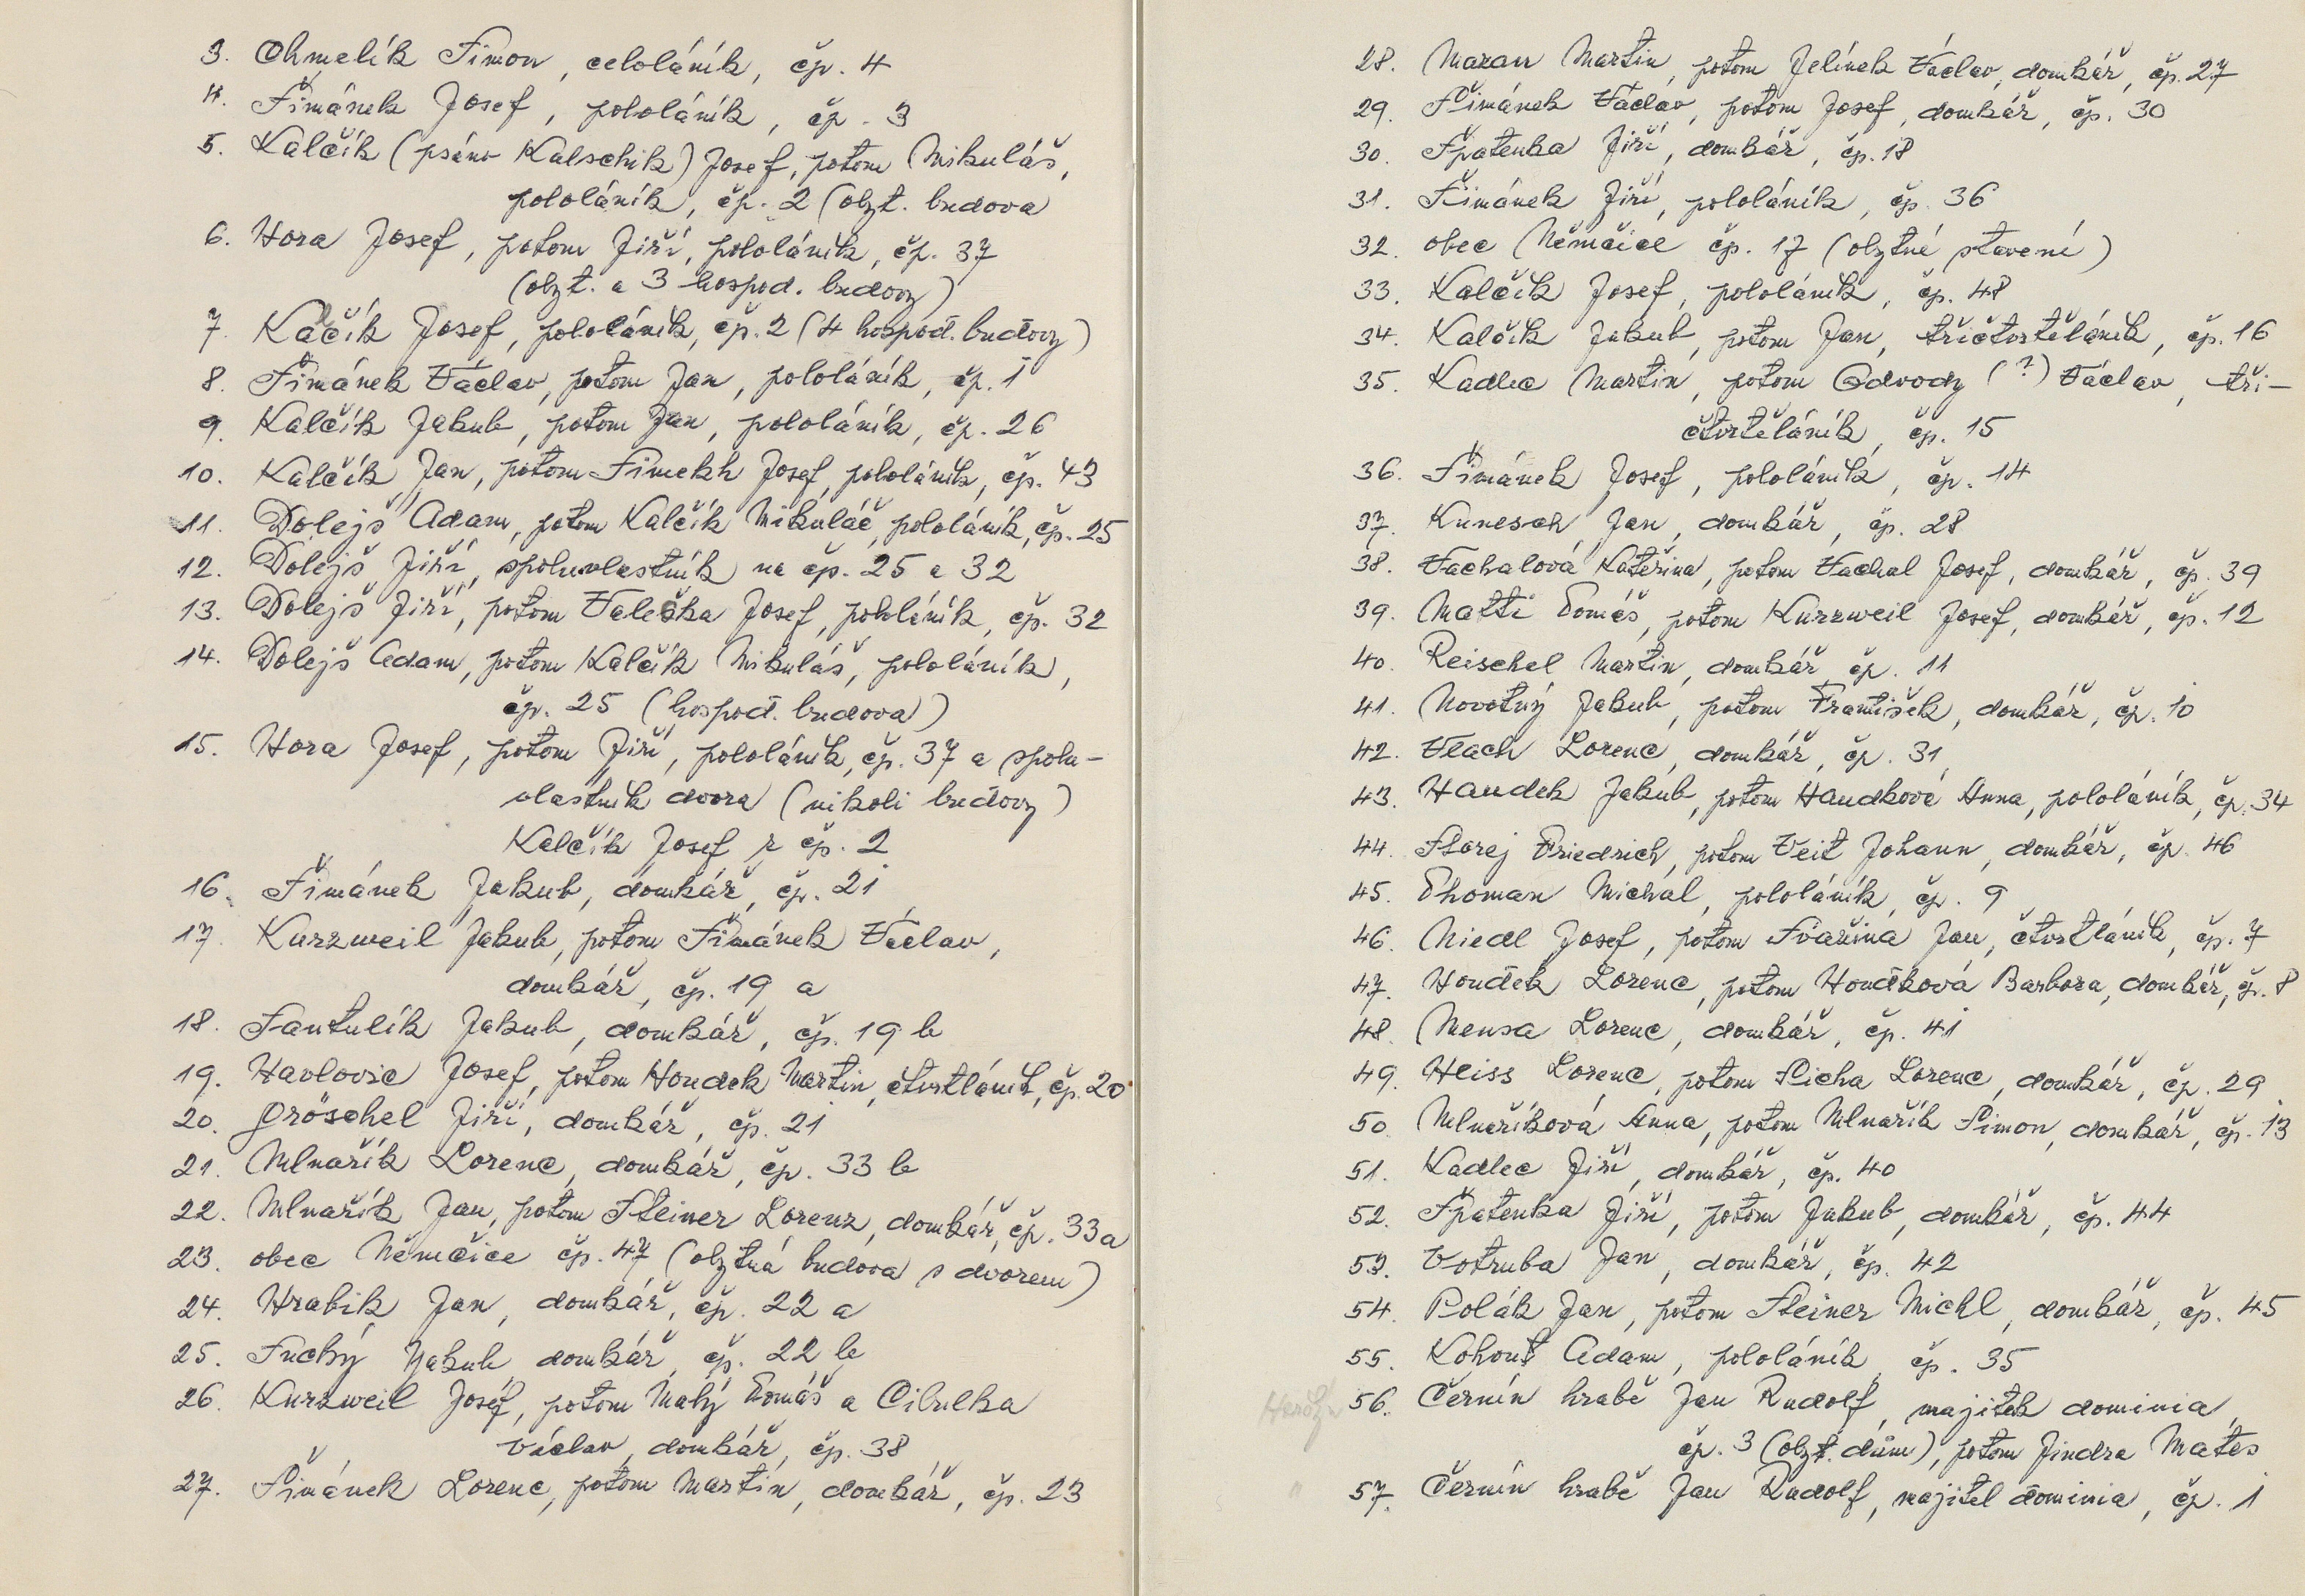 3. Chmelík Šimon, celoláník, čp. 4
4. Šimánek Josef, pololáník, čp. 3
5. Kalčík (psáno Kalschik) Josef, potom Mikuláš,
pololáník, čp. 2 (obyt. budova
6. Hora Josef, potom Jiří, pololáník, čp. 37
(obyt. a 3 hospod. budovy)
7. Kalčík Josef, pololáník, čp. 2 (4 hospod. budovy)
8. Šimánek Václav, potom Jan, pololáník, čp. 1
9. Kalčík Jakub, potom Jan, pololáník, čp. 26
10. Kalčík Jan, potom Šimekh Josef, pololáník, čp. 43
11. Dolejš Adam, potom Kalčík Mikuláš, pololáník, čp. 25
12. Dolejš Jiří, spoluvlastník na čp. 25 a 32
13. Dolejš Jiří, potom Valeška Josef, pololáník, čp. 32
14. Dolejš Adam, potom Kalčík Mikuláš, pololáník,
čp. 25 (hospod. budova)
15. Hora Josef, potom Jiří, pololáník, čp. 37 a spolu-
vlastník dvora (nikoli budovy)
Kalčík Josef z čp. 2
16. Šimánek Jakub, domkář, čp. 21
17. Kurzweil Jakub, potom Šimánek Václav,
domkář, čp. 19 a
18. Fantulík Jakub, domkář, čp. 19 b
19. Havlovic Josef, potom Houdek Martin, čtvrtláník, čp. 20
20. Gröschel Jiří, domkář, čp. 21
21. Mlnařík Lorenc, domkář, čp. 33 b
22. Mlnařík Jan, potom Steiner Lorenz, domkář, čp. 33a
23. obec Němčice čp. 47 (obytná budova s dvorem)
24. Hrabik Jan, domkář, čp. 22 a
25. Suchý Jakub, domkář, čp. 22 b
26. Kurzweil Josef, potom Malý Tomáš a Cibulka
Václav, domkář, čp. 38
27. Šimánek Lorenc, potom Martin, domkář, čp. 23
28. Mazan Martin, potom Jelínek Václav, domkář, čp. 27
29. Šimánek Václav, potom Josef, domkář, čp. 30
30. Špatenka Jiří, domkář, čp. 18
31. Šimánek Jiří, pololáník, čp. 36
32. obec Němčice čp. 17 (obytné stavení)
33. Kalčík Josef, pololáník, čp. 48
34. Kalčík Jakub, potom Jan, tříčtvrtěláník, čp. 16
35. Kadlec Martin, potom Odvody (?) Václav, tří-
čtvrtěláník, čp. 15
36. Šimánek Josef, pololáník, čp. 14
37. Kunesch Jan, domkář, čp. 28
38. Vachalová Kateřina, potom Vachal Josef, domkář, čp. 39
39. Matti Tomáš, potom Kurzweil Josef, domkář, čp. 12
40. Reischel Martin, domkář, čp. 11
41. Novotný Jakub, potom František, domkář, čp. 10
42. Vlach Lorenc, domkář, čp. 31
43. Haudek Jakub, potom Haudková Anna, pololáník, čp. 34
44. Storej Friedrich, potom Veit Johann, domkář, čp. 46
45. Thoman Michal, pololáník, čp. 9
46. Niedl Josef, potom Svařina Jan, čtvrtláník, čp. 7
47. Houdek Lorenc, potom Houdková Barbora, domkář, čp. 8
48. Mensa Lorenc, domkář, čp. 41
49. Heiss Lorenc, potom Plicha Lorenc, domkář, čp. 29
50. Mlnaříková Anna, potom Mlnařík Šimon, domkář, čp. 13
51. Kadlec Jiří, domkář, čp. 40
52. Špatenka Jiří, potom Jakub, domkář, čp. 44
53. Votruba Jan, domkář, čp. 42
54. Polák Jan, potom Steiner Michl, domkář, čp. 45
55. Kohout Adam, pololáník, čp. 35
56. Černín hrabě Jan Rudolf, majitel dominia,
čp. 3 (obyt. dům), potom Jindra Mates
57. Černín hrabě Jan Rudolf, majitel dominia, čp. 1